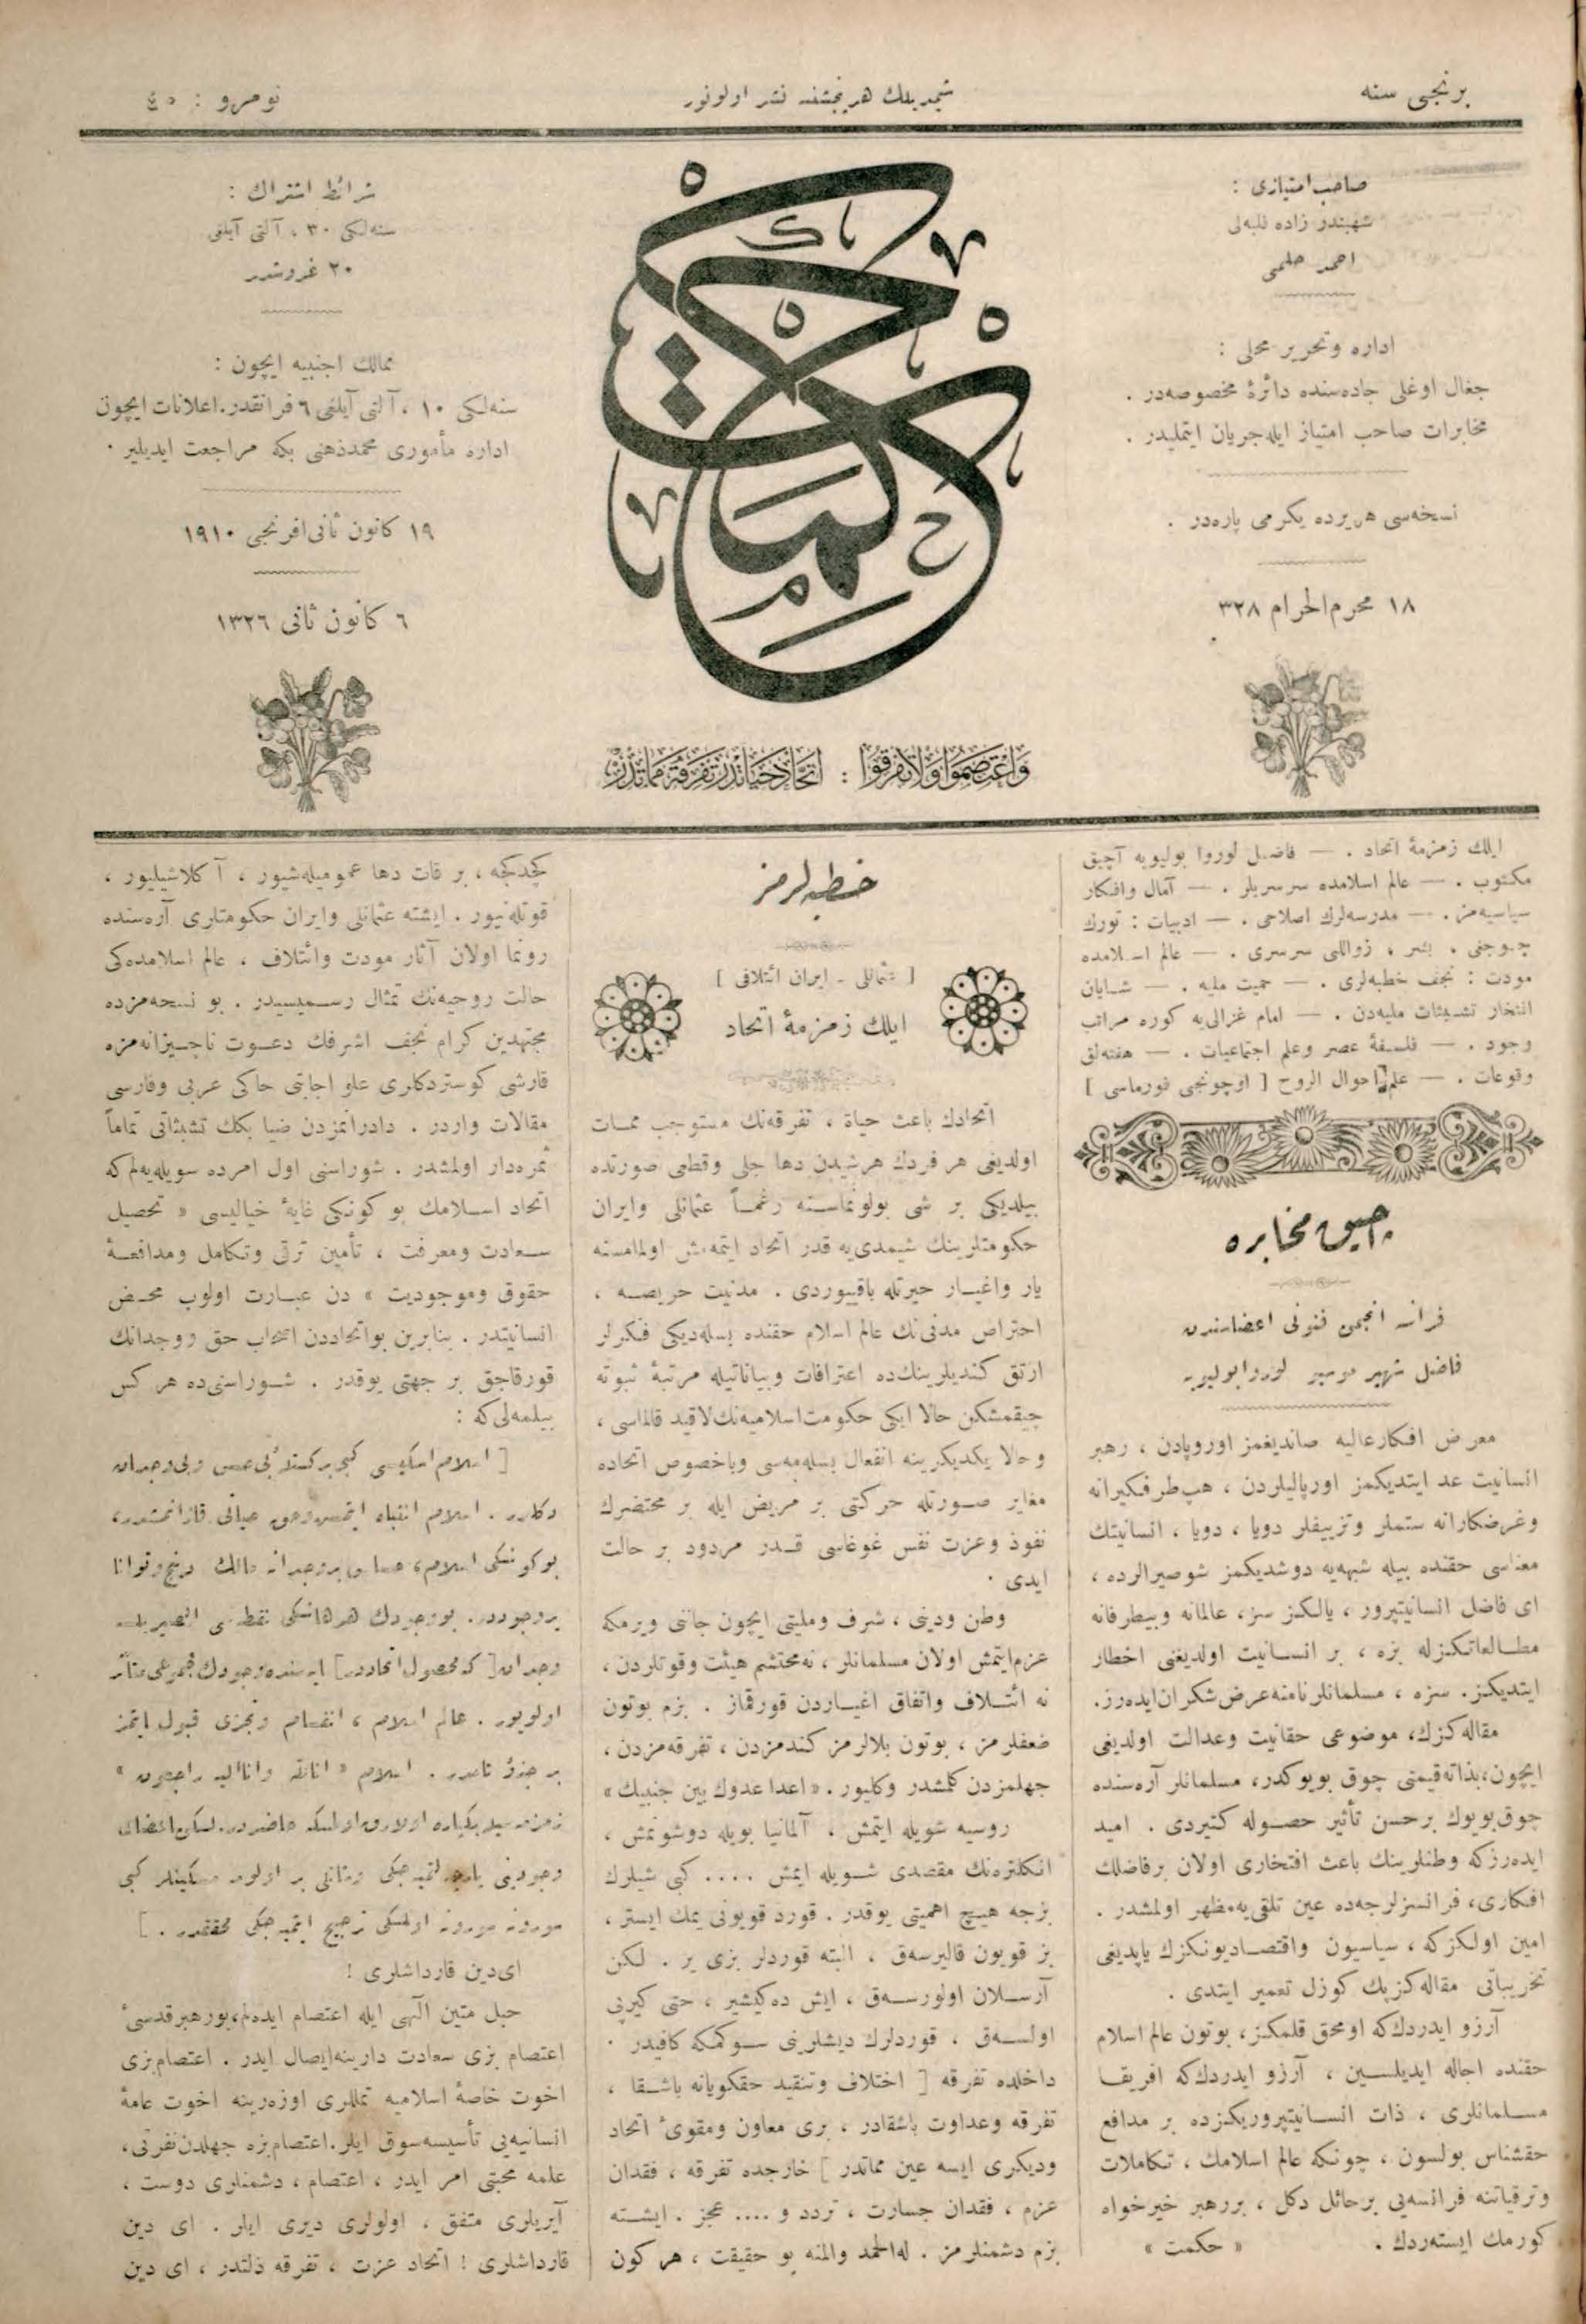 برنجی سنه
شیمدیلك هر پنجشنبه نشر اولونور
نومرو : ٤٥
صاحب امتیازی :
شهبندر زاده فلبه‌لی
احمد حلمی
اداره وتحریر محلی :
جغال اوغلی جاده‌سنده دائرهٔ مخصوصه‌در .
مخابرات صاحب امتیاز ایله جریان ایتملیدر .
نسخه‌سی هریرده یكرمی پاره‌در .
١٨ محرم الحرام ٣٢٨
حكمت
وَاعْتَصِمُوا وَلَا تَفَرَّقُوا : اتحاد حیاتدر تفرقه مماتدر
شرائط اشتراك :
سنه‌لكی ٣٠ ، آلتی آیلغی
٢٠ غروشدر
ممالك اجنبیه ایچون :
سنه‌لكی ١٠ ، آلتی آیلغی ٦ فرانقدر . اعلانات ایچون
اداره مأموری محمد ذهنی بكه مراجعت ایدیلیر .
١٩ كانون ثانی افرنجی ١٩١٠
٦ كانون ثانی ١٣٢٦
ایلك زمزمهٔ اتحاد . — فاضل لوروا بولیویه آچیق
مكتوب . — عالم اسلامده سرسریلر . — آمال وافكار
سیاسیه‌مز . — مدرسه‌لرك اصلاحی . — ادبیات : تورك
چوجغی ، بشر ، زواللی سرسری . — عالم اسلامده
مودت : نجف خطبه‌لری . — حمیت ملیه . — شایان
افتخار تشبثات ملیه‌دن . — امام غزالی‌یه كوره مراتب
وجود . — فلسفهٔ عصر وعلم اجتماعیات . — هفته‌لق
وقوعات . — علم احوال الروح [ اوچونجی فورماسی ]
آچیق مخابره
فرانسه انجمن فنونی اعضاسندن
فاضل شهیر موسیو لوروا بولیویه
معرض افكار عالیه صاندیغمز اوروپادن ، رهبر
انسانیت عد ایتدیكمز اوروپالیلردن ، هپ طرفكیرانه
وغرضكارانه ستملر وتزییفلر دویا ، دویا ، انسانیتك
معناسی حقنده بیله شبهه‌یه دوشدیكمز شو صیرالرده ،
ای فاضل انسانیتپرور ، یالكز سز ، عالمانه وبیطرفانه
مطالعاتكزله بزه ، بر انسانیت اولدیغنی اخطار
ایتدیكز . سزه ، مسلمانلر نامنه عرض شكران ایده‌رز .
مقاله‌كزك ، موضوعی حقانیت وعدالت اولدیغی
ایچون ، بذاته قیمتی چوق بویوكدر ، مسلمانلر آره‌سنده
چوق بویوك بر حسن تأثیر حصوله كتیردی . امید
ایده‌رز كه وطنلرینك باعث افتخاری اولان بر فاضلك
افكاری ، فرانسزلرجه‌ده عین تلقی‌یه مظهر اولمشدر .
امین اولكز كه ، سیاسیون واقتصادیونكزك یاپدیغی
تخریباتی مقاله‌كز پك كوزل تعمیر ایتدی .
آرزو ایدردك كه او محق قلمكز ، بوتون عالم اسلام
حقنده اجاله ایدیلسین ، آرزو ایدردك كه افریقا
مسلمانلری ، ذات انسانیتپروریكزده بر مدافع
حقشناس بولسون ، چونكه عالم اسلامك ، تكاملات
وترقیاتنه فرانسه‌یی بر حائل دكل ، بر رهبر خیرخواه
كورمك ایسته‌ردك . « حكمت »
خطبه‌لرمز
[ عثمانلی - ایران ائتلافی ]
ایلك زمزمهٔ اتحاد
اتحادك باعث حیاة ، تفرقه‌نك مستوجب ممات
اولدیغی هر فردك هر شیدن دها جلی وقطعی صورتده
بیلدیكی بر شی بولونماسنه رغماً عثمانلی وایران
حكومتلرینك شیمدی‌یه قدر اتحاد ایتمه‌مش اولمامسنه
یار واغیار حیرتله باقییوردی . مدنیت حریصه ،
احتراص مدنی‌نك عالم اسلام حقنده بسله‌دیكی فكرلر
ارتق كندیلرینك‌ده اعترافات وبیاناتیله مرتبهٔ ثبوته
چیقمشكن حالا ایكی حكومت اسلامیه‌نك لاقید قالماسی ،
وحالا یكدیكرینه انفعال بسله‌مه‌سی وباخصوص اتحاده
مغایر صورتله حركتی بر مریض ایله بر محتضرك
نفوذ وعزت نفس غوغاسی قدر مردود بر حالت
ایدی .
وطن ودینی ، شرف وملیتی ایچون جاننی ویرمكه
عزم ایتمش اولان مسلمانلر ، نه محتشم هیئت وقوتلردن ،
نه ائتلاف واتفاق اغیاردن قورقماز . بزم بوتون
ضعفلرمز ، بوتون بلالرمز كندمزدن ، تفرقه‌مزدن ،
جهلمزدن كلمشدر وكلیور . « اعدا عدوك بین جنبیك »
روسیه شویله ایتمش ، آلمانیا بویله دوشونمش ،
انكلتره‌نك مقصدی شویله ایمش .... كبی شیلرك
بزجه هیچ اهمیتی یوقدر . قورد قویونی یمك ایستر ،
بز قویون قالیرسه‌ق ، البته قوردلر بزی یر . لكن
آرسلان اولورسه‌ق ، ایش ده‌كیشیر ، حتی كیرپی
اولسه‌ق ، قوردلرك دیشلرینی سوكمكه كافیدر .
داخلده تفرقه [ اختلاف وتنقید حقكویانه باشقا ،
تفرقه وعداوت باشقادر ، بری معاون ومقویٔ اتحاد
ودیكری ایسه عین مماتدر ] خارجده تفرقه ، فقدان
عزم ، فقدان جسارت ، تردد و .... عجز . ایشته
بزم دشمنلرمز . له الحمد والمنه بو حقیقت ، هر كون
كچدكجه ، بر قات دها عمومیله‌شیور ، آكلاشیلیور ،
قوتله‌نیور . ایشته عثمانلی وایران حكومتلری آره‌سنده
رونما اولان آثار مودت وائتلاف ، عالم اسلامده‌كی
حالت روحیه‌نك تمثال رسمیسیدر . بو نسخه‌مزده
مجتهدین كرام نجف اشرفك دعوت ناچیزانه‌مزه
قارشی كوستردكلری علو اجابتی حاكی عربی وفارسی
مقالات واردر . دادرانمزدن ضیا بكك تشبثاتی تماماً
ثمره‌دار اولمشدر . شوراسنی اول امرده سویله‌یه‌لم كه
اتحاد اسلامك بو كونكی غایهٔ خیالیسی « تحصیل
سعادت ومعرفت ، تأمین ترقی وتكامل ومدافعهٔ
حقوق وموجودیت » دن عبارت اولوب محض
انسانیتدر . بناءبرین بو اتحاددن اصحاب حق ووجدانك
قورقاجق بر جهتی یوقدر . شوراسنی‌ده هر كس
بیلمه‌لی كه :
[ اسلام اسكیسی كبی بر كتلهٔ بی حس وبی وجدان
دكلدر . اسلام انتباه ایتمش وحق حیاتی قازانمشدر ،
بو كونكی اسلام ، حساس بر وجدانه مالك دینچ وتوانا
بر وجوددر . بو وجودك هر هانكی نقطه‌سی
وجدان [ كه محصول اتحاددر ] ایله‌سنده وجودك مجموعی متأثر
اولویور . عالم اسلام ، انقسام وتجزی قبول ایتمز
بر جزؤ تامدر . اسلام « انالله وانا الیه راجعون »
زمزمه‌سیله یكپاره اولارق اولمكه حاضردر . لكن اعضای
وجودینی كبی
اولمكی ترجیح ایتمیه‌جكی محققدر . ]
ای دین قارداشلری !
حبل متین الهی ایله اعتصام ایده‌لم ، بو رهبر قدسیٔ
اعتصام بزی سعادت دارینه ایصال ایدر . اعتصام بزی
اخوت خاصهٔ اسلامیه تمللری اوزه‌رینه اخوت عامهٔ
انسانیه‌یی تأسیسه سوق ایلر . اعتصام بزه جهلدن نفرتی ،
علمه محبتی امر ایدر ، اعتصام ، دشمنلری دوست ،
آیریلری متفق ، اولولری دیری ایلر . ای دین
قارداشلری ! اتحاد عزت ، تفرقه ذلتدر ، ای دین